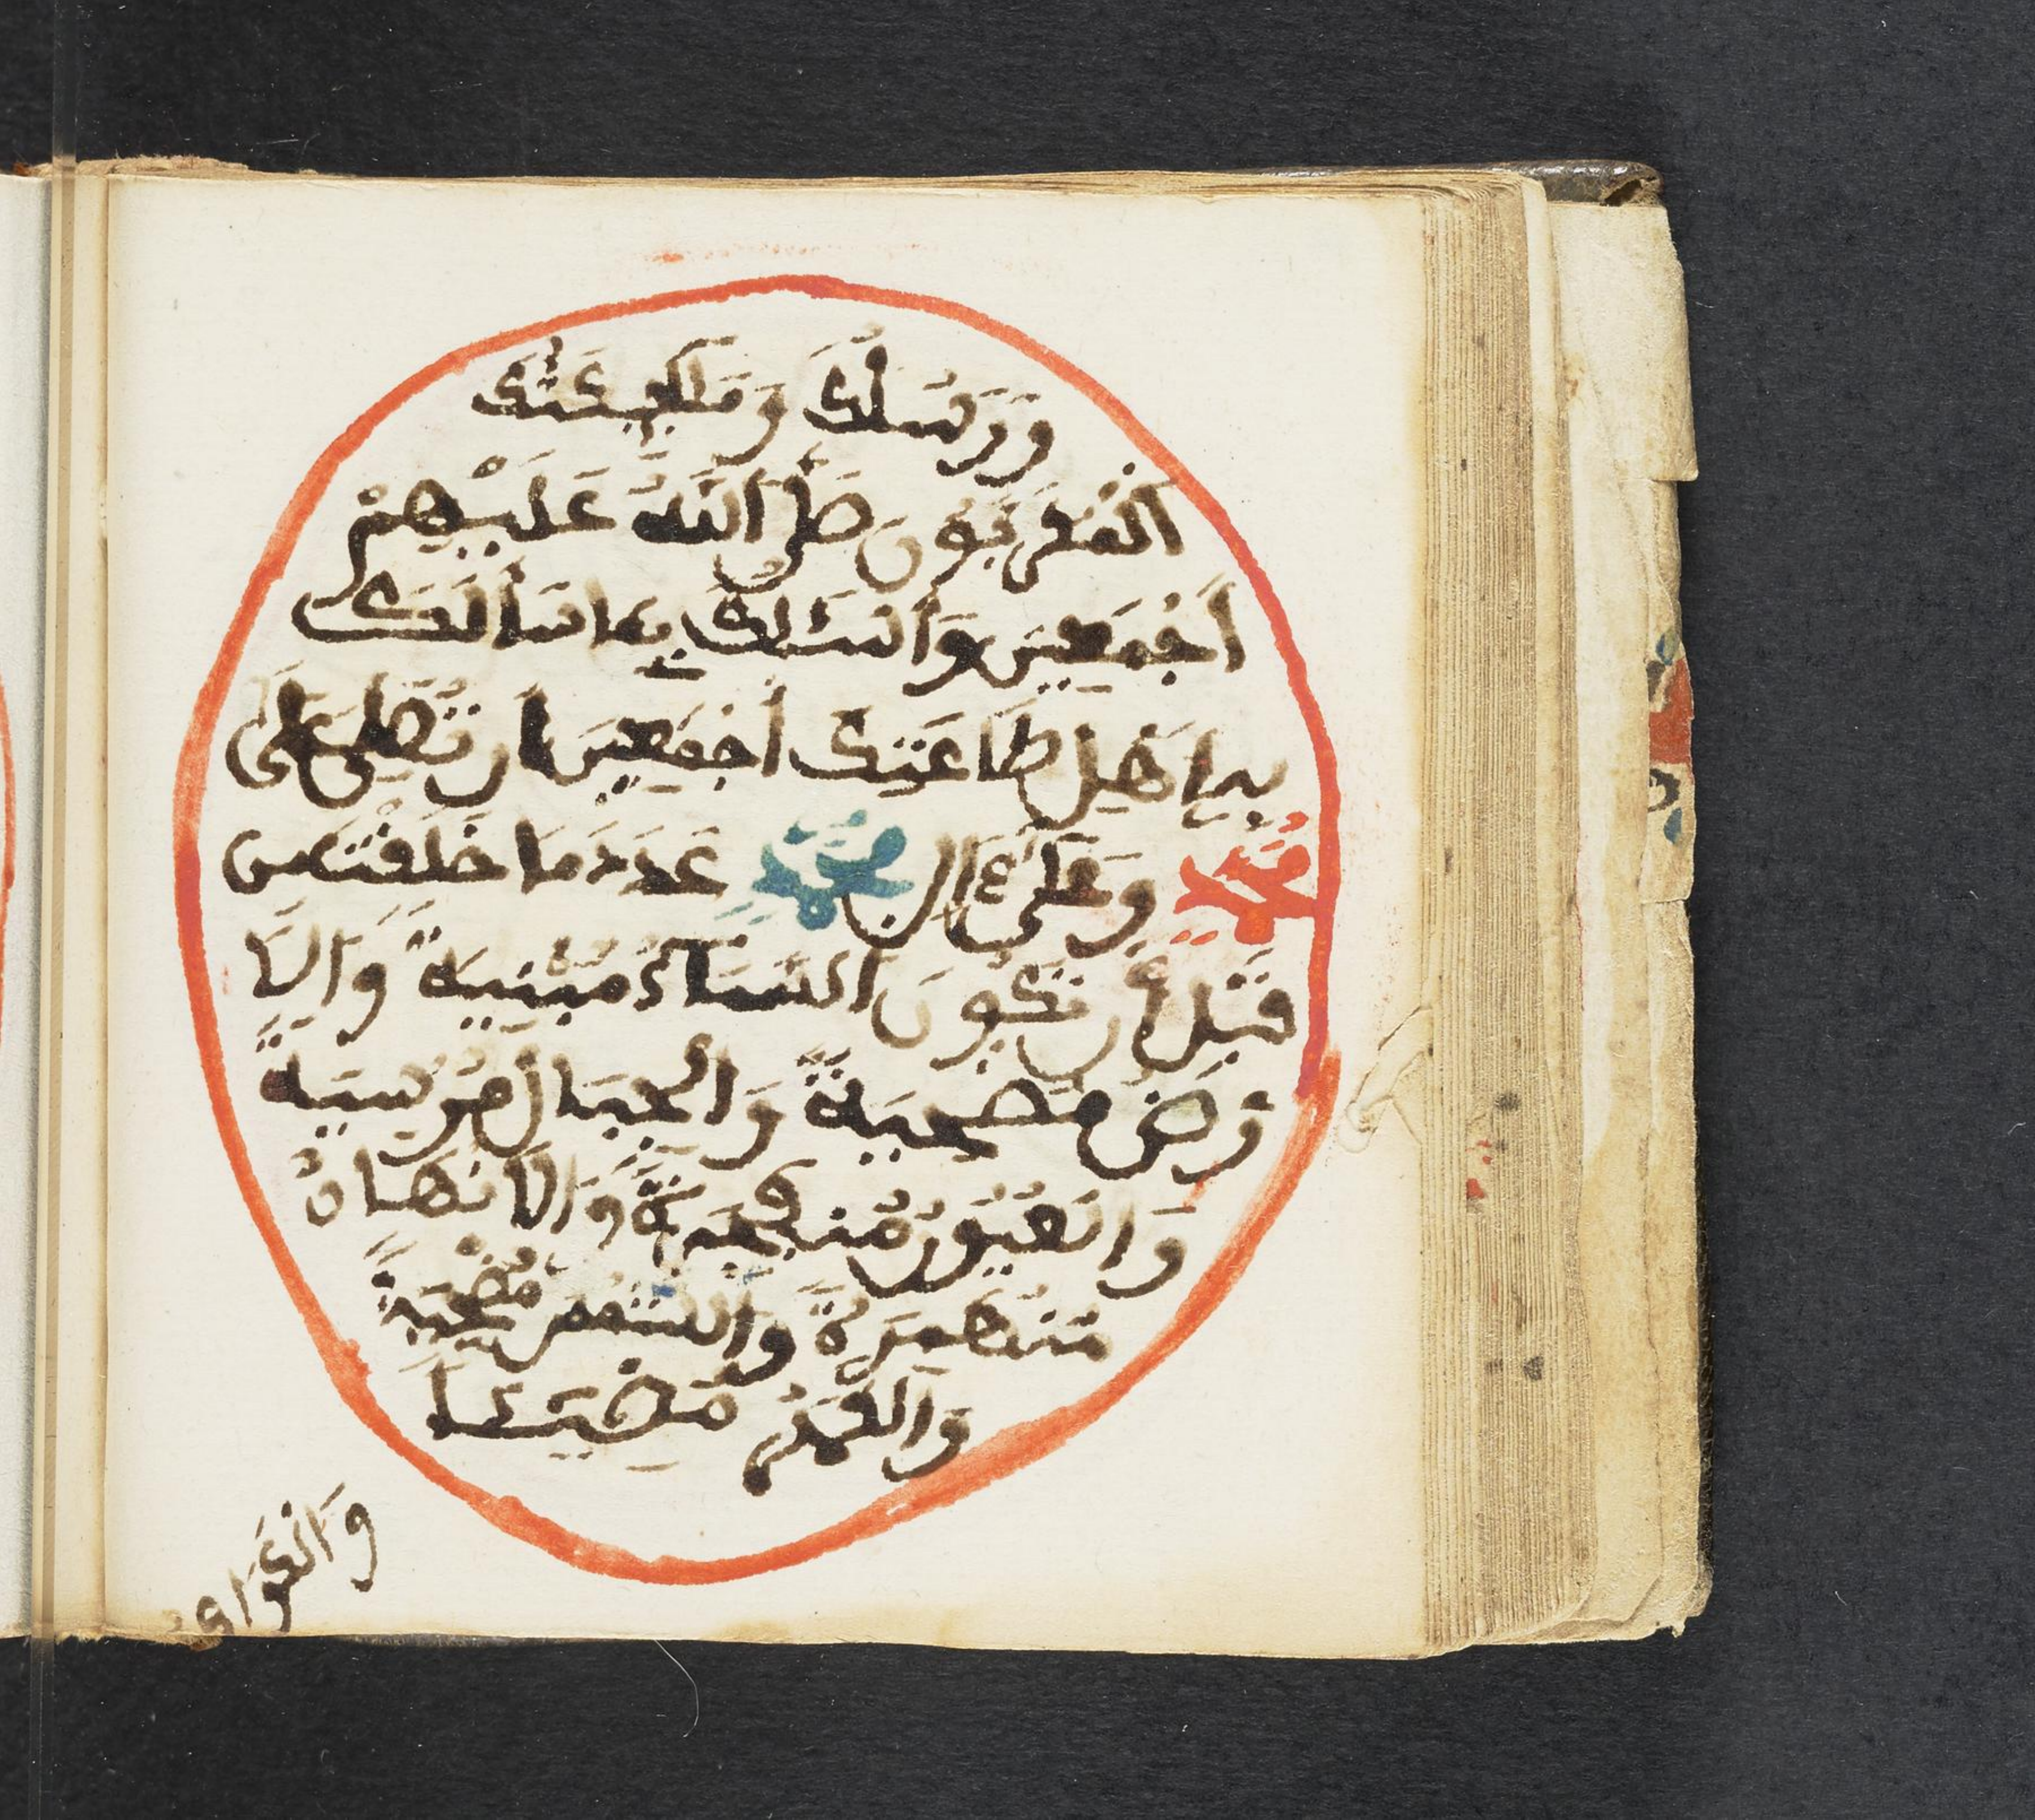 وَرُسُلُكَ وَمَلَٰئِكَتُكَ
اَلْمُقَرَّبُونَ صَلَّى اَللَّهُ عَلَيْهِمْ
أَجْمَعِينَ وَأَسْئَلُكَ بِمَا سَأَلَكَ
بِهِ أَهْلُ طَاعَتِكَ أَجْمَعِينَ أَن تُصَلِّيَ عَلَى
مُحَمَّدٍ وَعَلَى ءَالِ مُحَمَّدٍ عَدَدَ مَا خَلَقْتَ مِن
قَبْلِ أَن تَكُونَ اَلسَّمَاءُ مَبْنِيَةً وَالَا
رْضُ مَدْحِيَةً وَالْجِبَالُ مُرْسِيَةً
وَالْعُيُونُ مُنفَجِرَةً وَالَانْهَارُ
مُنْهَمِرَةً وَالشَّمْسُ مُضْحِيَةً
وَالْقَمَرُ مُضِيئًا
وَالْكَوَاكِ